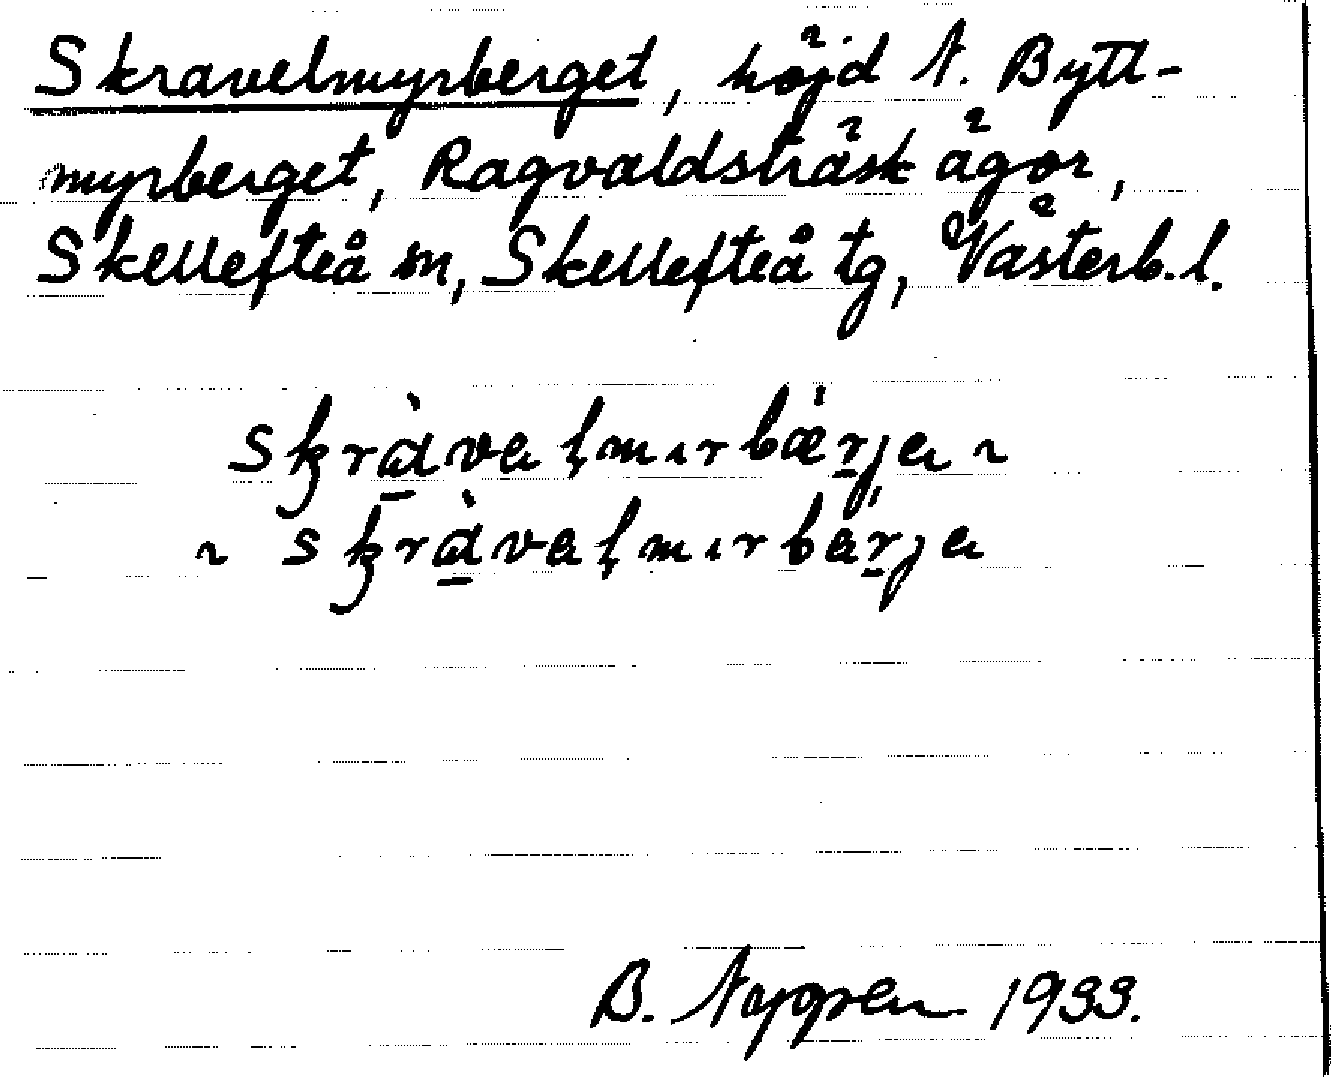 Skravelmyrberget, höjd N. Bytt-
myrberget, Ragvaldsträsk ägor,
Skellefteå sn, Skellefteå tg, Västerb. l.
skràvalmırbæ̀rjeı ~
~ skràvalmırbàrjeı
B. Nygren 1933.